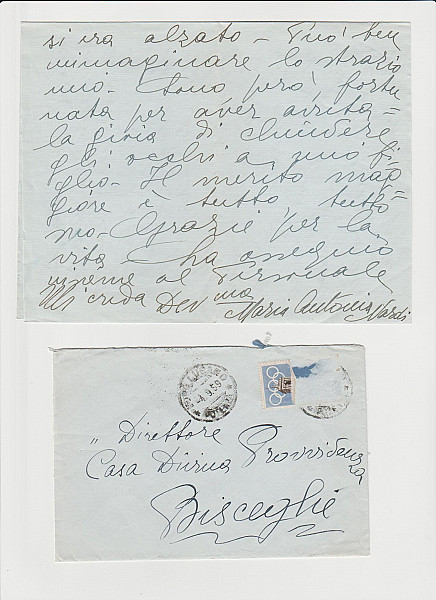 si era alzato - Può ben
immaginare lo strazio
mio - Sono però fortu
nata per aver avuta =
la gioia di chiudere
gli occhi a mio fi-
glio - Il merito mag-
giore è tutto, tutto
Suo - Grazie per la
vita ha assegnò
insieme al Personale
Mi creda Dev ma Maria Antonia Nardi
4.9.59
" Direttore
Casa Divina Provvidenza
Bisceglie